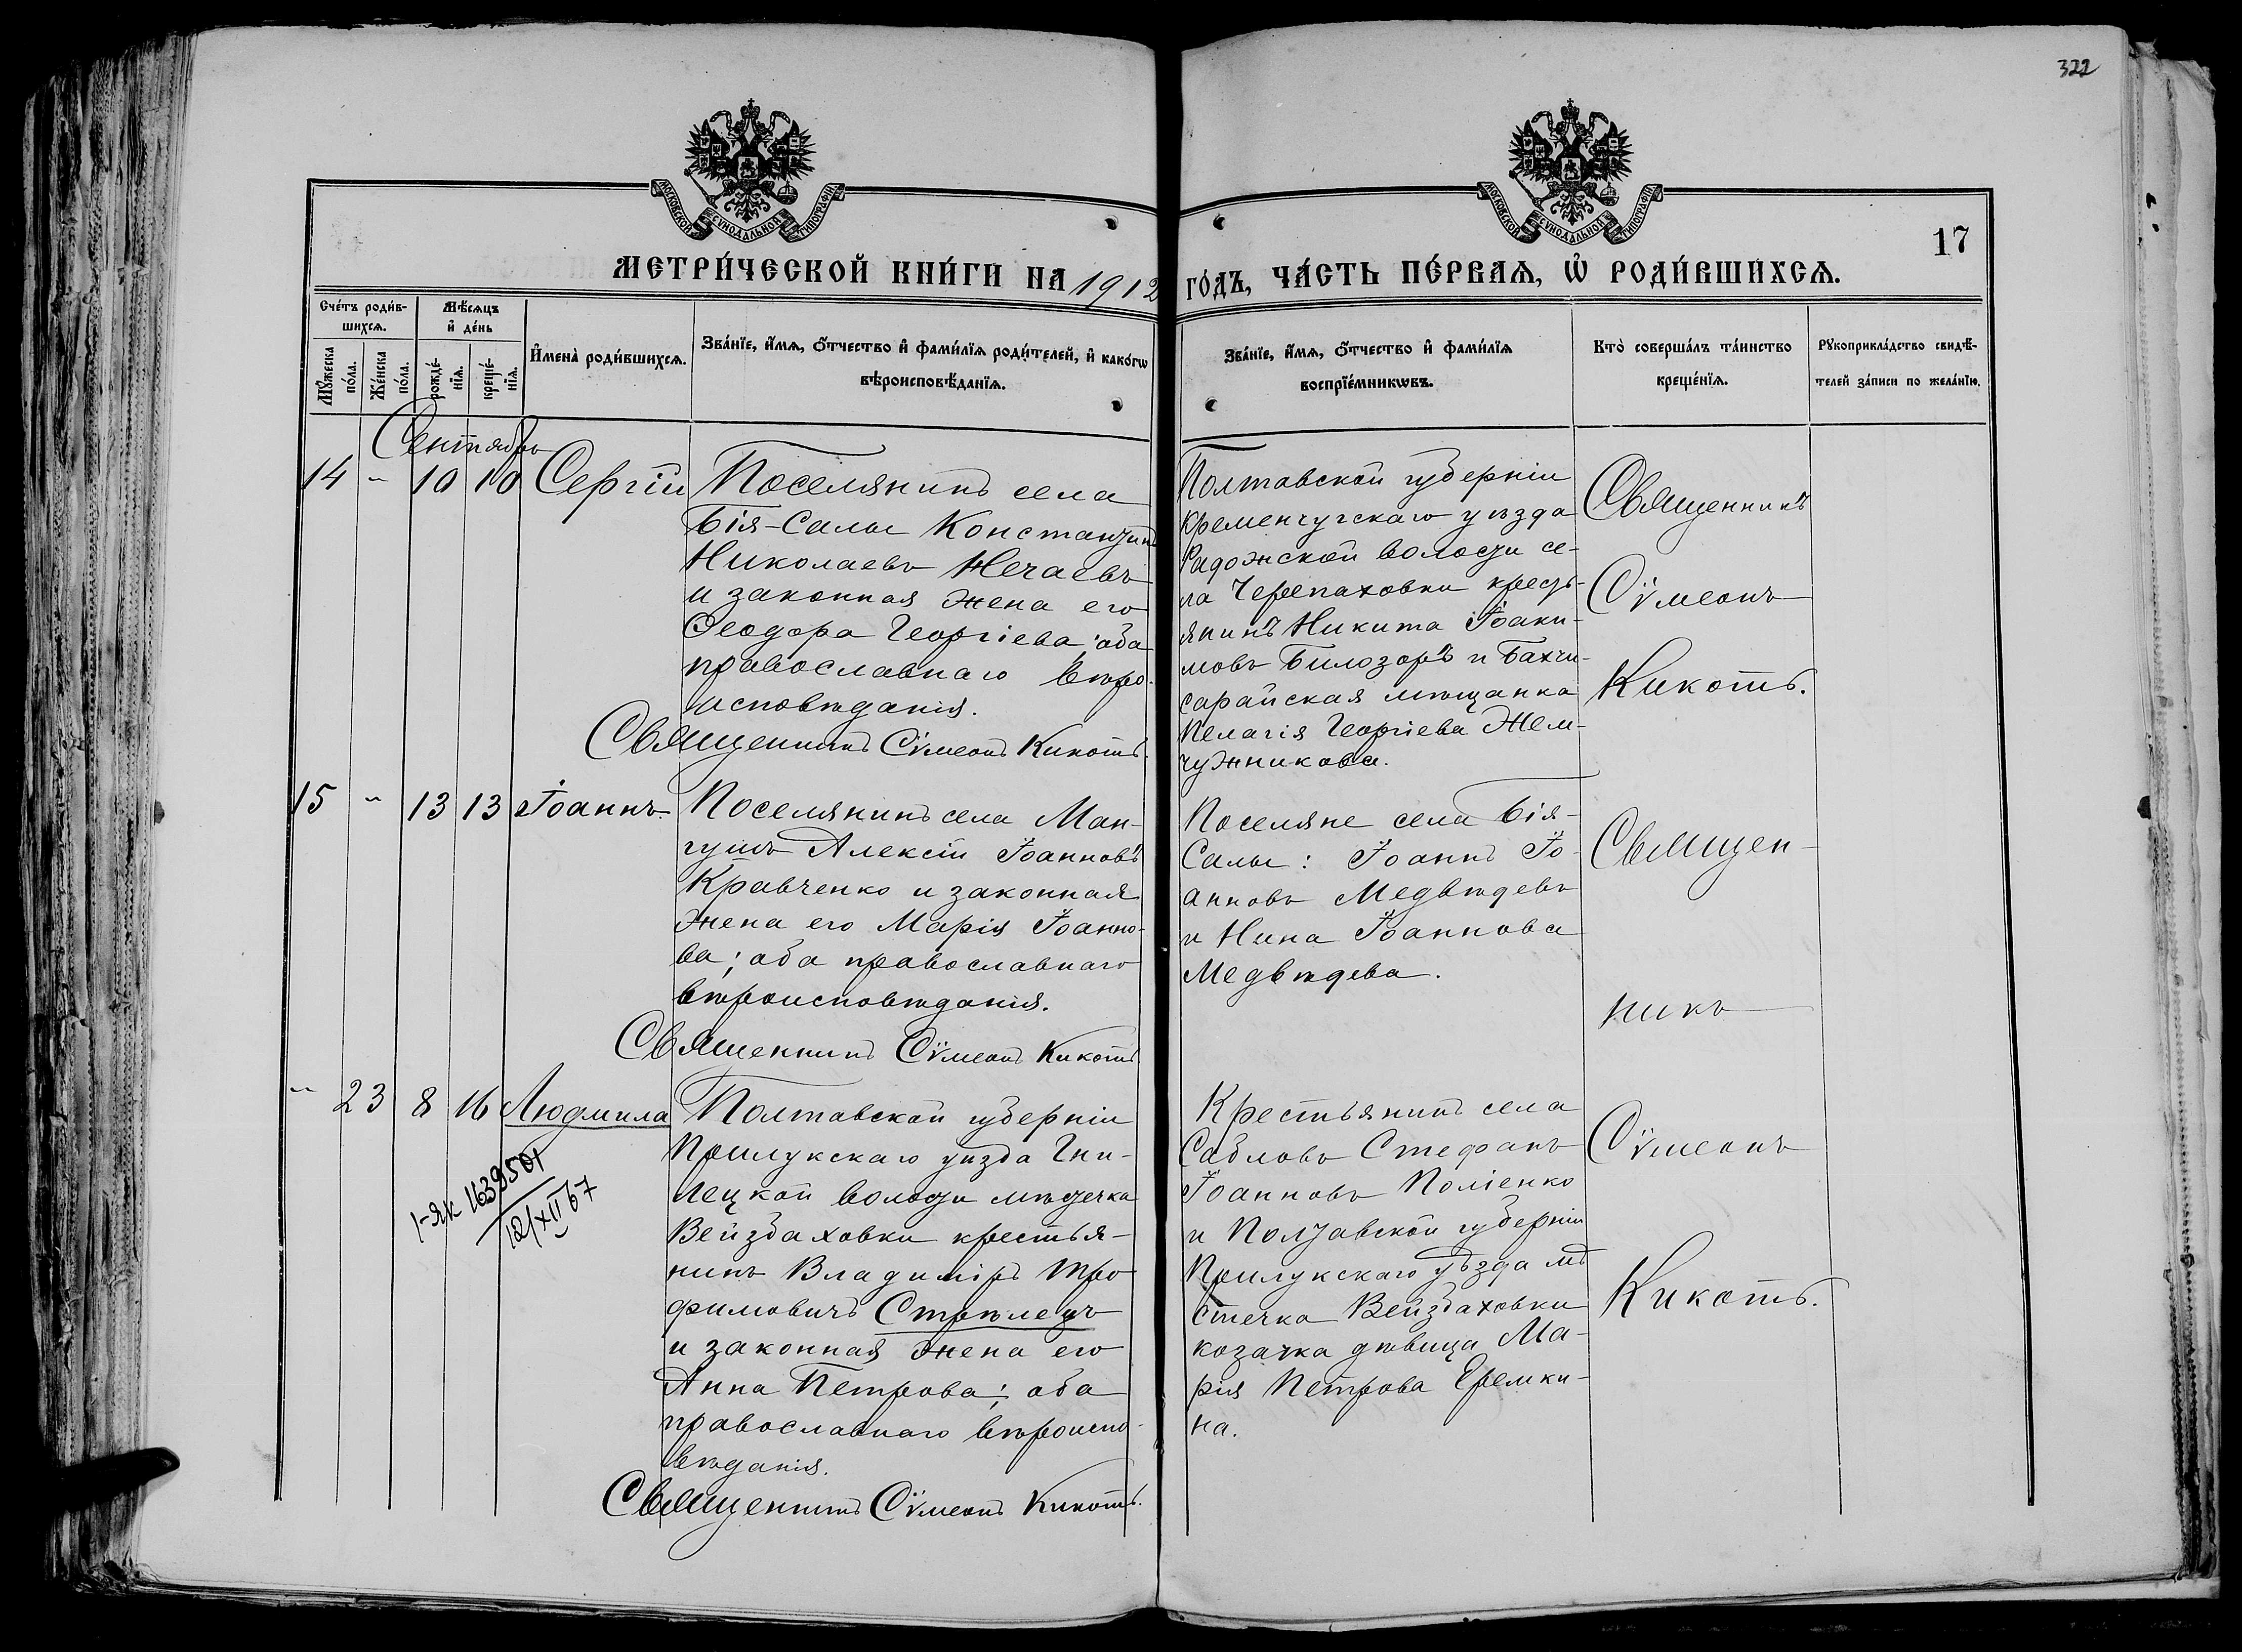 322
МОСКОВСКОЙ СѴНОДАЛЬНОЙ ТИПОГРАФІИ
МОСКОВСКОЙ СѴНОДАЛЬНОЙ ТИПОГРАФІИ
17
МЕТРИ́ЧЕСКОЙ КНИ́ГИ НА 1912 ГО́ДЪ, ЧА́СТЬ ПЕ́РВАѦ, Ѡ҆ РОДИ́ВШИХСѦ.
Сче́тъ роди́в-
шихсѧ.
Мѣ́сѧцъ
и҆ де́нь
Мꙋ́жеска
по́ла.
Же́нска
по́ла.
рожде́-
нїѧ.
креще́-
нїѧ.
И҆мена̀ роди́вшихсѧ.
Зва́нїе, и҆́мѧ, ѻ҆́тчество и҆ фами́лїѧ роди́телей, и҆ како́гѡ
вѣроисповѣ́данїѧ.
Зва́нїе, и҆́мѧ, ѻ҆́тчество и҆ фами́лїѧ
воспрїе́мникѡвъ.
Кто̀ соверша́лъ та́инство
креще́нїѧ.
Рꙋкоприкла́дство свидѣ́-
телей за́писи по жела́нїю.
Сентябрь
14 " 10 10 Сергій
Поселянинъ села
Бія-Салы Константинъ
Николаевъ Нечаевъ
и законная жена его
Ѳеодора Георгіева; оба
православнаго вѣро-
исповѣданія.
Священникъ Сѵмеонъ Кикоть.
Полтавской губерніи
Кременчугскаго уѣзда
Радожской волости се-
ла Черепаховки кресть-
янинъ Никита Іоаки-
мовъ Билозоръ и Бахчи-
сарайская мѣщанка
Пелагія Георгіева Жем-
чужникова.
Священникъ
Сѵмеонъ
Кикоть.
15 " 13 13 Іоаннъ.
Поселянинъ села Ман-
гушъ Алексій Іоанновъ
Кравченко и законная
жена его Марія Іоанно-
ва; оба православнаго
вѣроисповѣданія.
Священникъ Сѵмеонъ Кикоть
Поселяне села Бія-
Салы: Іоаннъ Іо-
анновъ Медвѣдевъ
и Нина Іоаннова
Медвѣдева.
Священ-
никъ
" 23 8 16 Людмила
1-ЯК 1639501
12/XII 67
Полтавской губерніи
Прилукскаго уѣзда Гни-
лецкой волости мѣстечка
Вейзбаховки крестья-
нинъ Владиміръ Тро
фимовичъ Стрѣлецъ
и законная жена его
Анна Петрова; оба
православнаго вѣроиспо-
вѣданія.
Священникъ Сѵмеонъ Кикоть.
Крестьянинъ села
Сабловъ Стефанъ
Іоанновъ Поліенко
и Полтавской губерніи
Прилукскаго уѣзда мѣ
стечка Вейзбаховки
козачка дѣвица Ма-
рія Петрова Еремки-
на.
Сѵмеонъ
Кикоть.